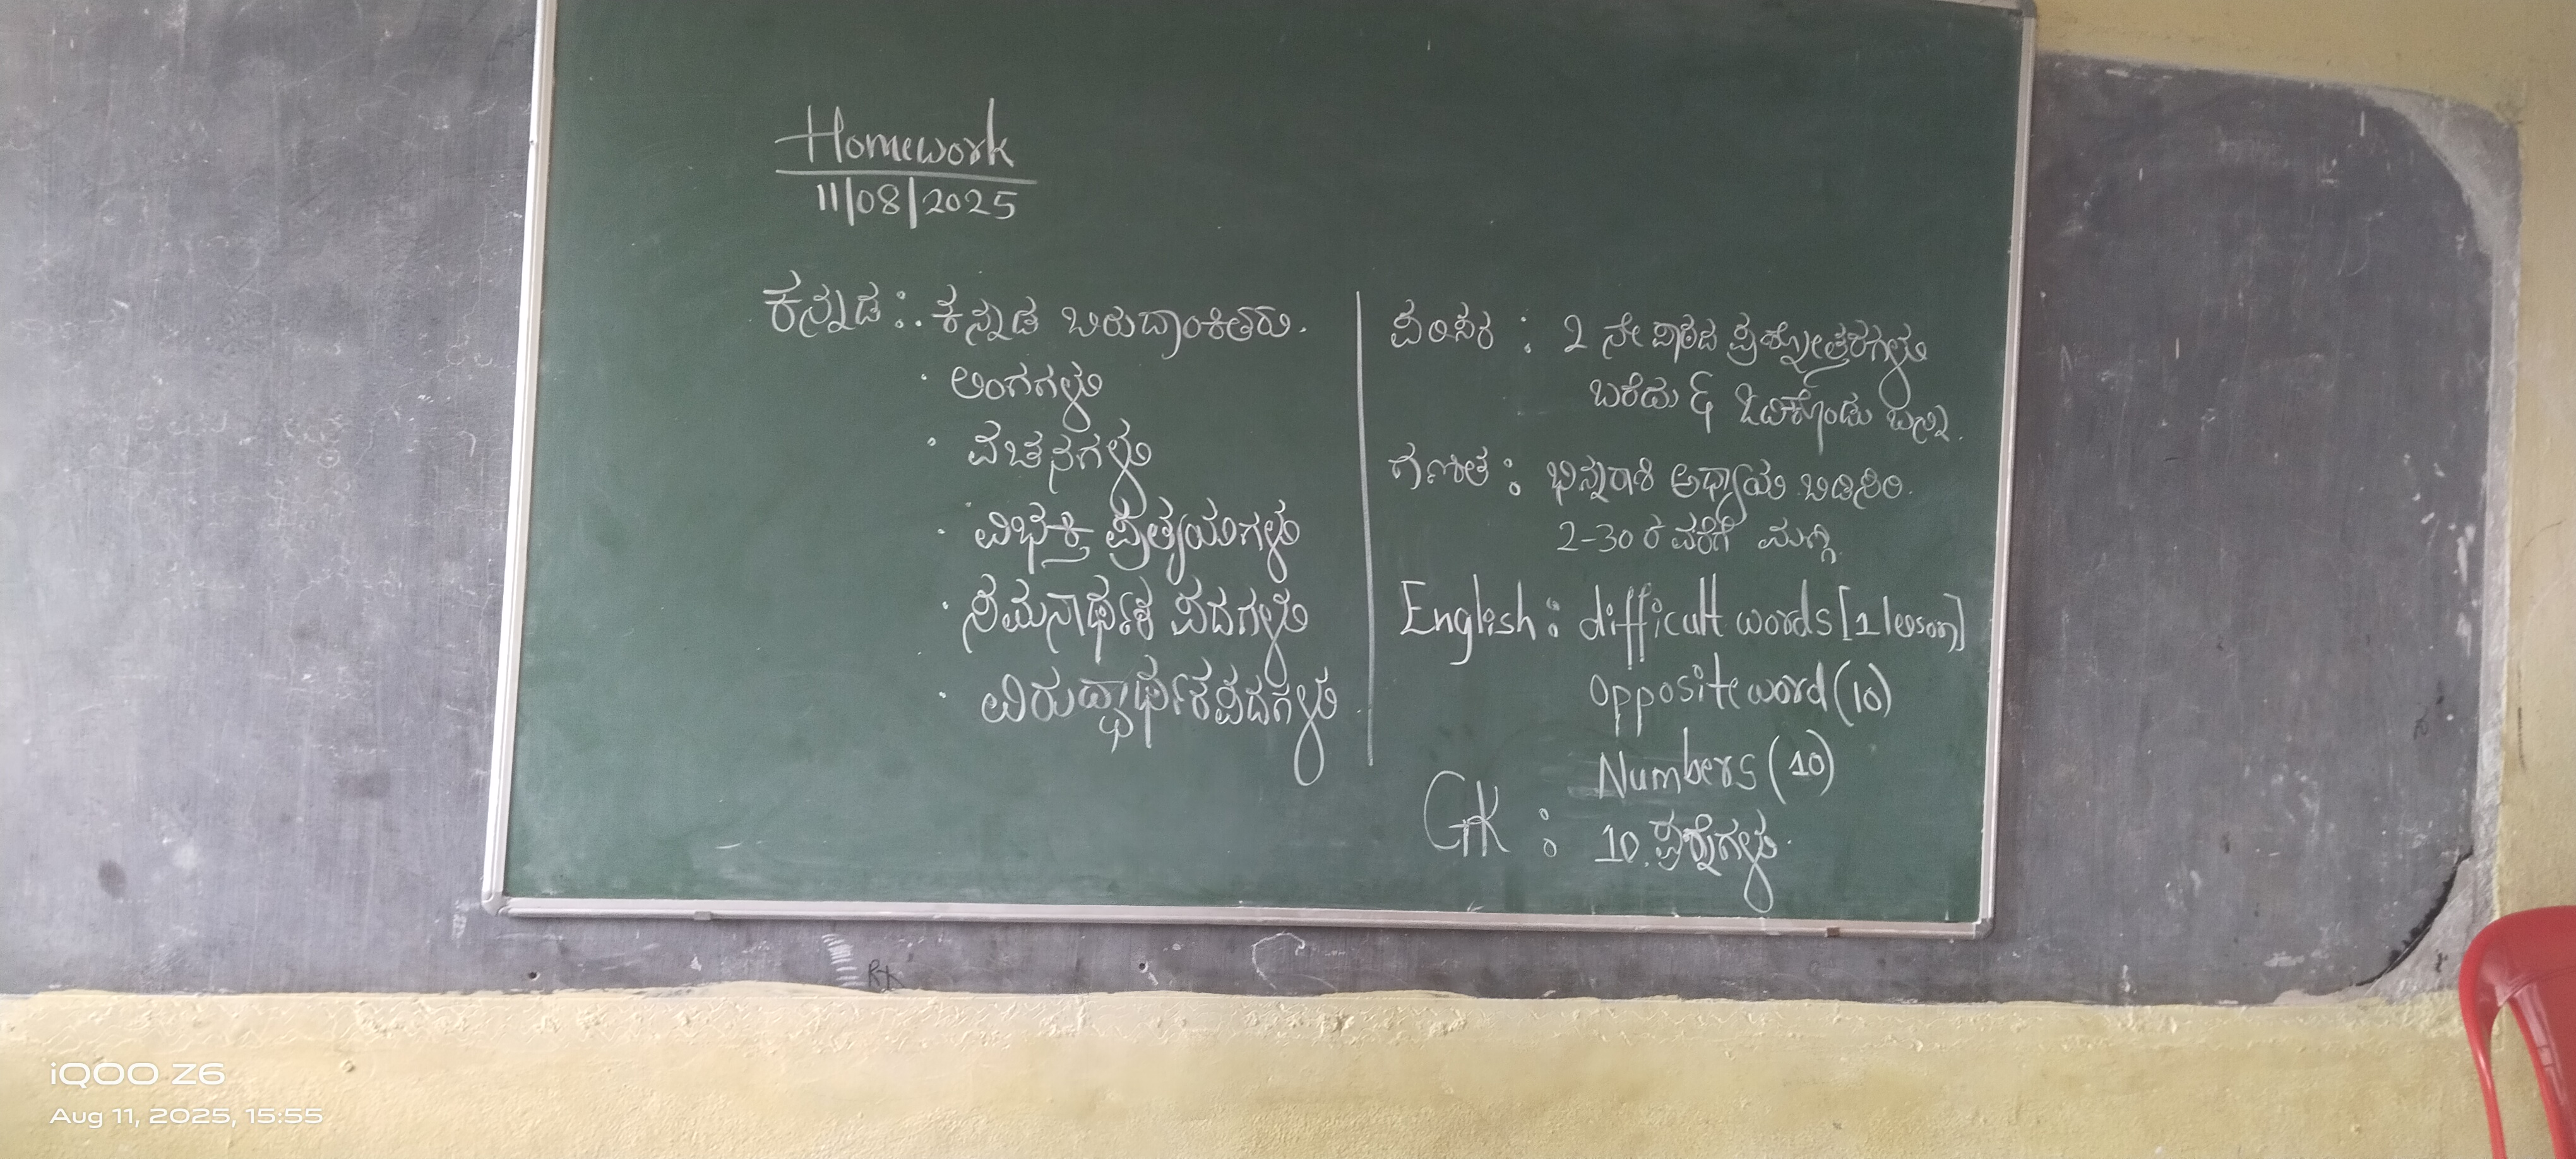 Homework
11/08/2025
ಕನ್ನಡ : . ಕನ್ನಡ ಬಿರುದಾಂಕಿತರು.
. ಲಿಂಗಗಳು
. ವಚನಗಳು
. ವಿಭಕ್ತಿ ಪ್ರತ್ಯಯಗಳು
. ಸಮನಾರ್ಥಕ ಪದಗಳು
. ವಿರುದ್ಧಾರ್ಥಕ ಪದಗಳು
ಪರಿಸರ : 2 ನೇ ಪಾಠದ ಪ್ರಶ್ನೋತ್ತರಗಳು
ಬರೆದು & ಓದಿಕೊಂಡು ಬನ್ನಿ.
ಗಣಿತ : ಭಿನ್ನರಾಶಿ ಅಧ್ಯಾಯ ಬಿಡಿಸಿರಿ.
2-30 ರ ವರೆಗೆ ಮಗ್ಗಿ
English : difficult words [1 lesson]
Opposite word (10)
Numbers (10)
GK : 10. ಪ್ರಶ್ನೆಗಳು.
RK
iQOO Z6
Aug 11, 2025, 15:55